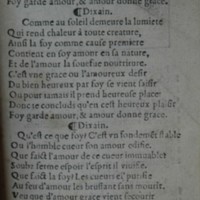 Foy garde amour, & amour donne grace.
¶ Dixain.
Comme au soleil demeure la lumiere
Qui rend chaleur à toute creature,
Ainsi la foy comme cause premiere
Contient en soy amour en sa nature,
Et de l'amour la souefue nourriture.
C'est vne grace ou l'amoureux desir
Du bien heureux par foy se vient saisir
Ou pour iamais il prend heureuse place:
Donc ie conclods qu'en cest heureux plaisir
Foy garde amour, & amour donne grace.
¶ Dixain.
Qu'est ce que foy? C'est vn fondemẽt stable
Ou l'humble cœur son amour edifie.
Que faict l'amour de ce cueur immuable?
Soubz ferme espoir l'esprit il viuifie.
Que faict la foy? Les cueurs el' purifie
Au feu d'amour les bruslant sans mourir.
Veu que d'amour grace vient secourir